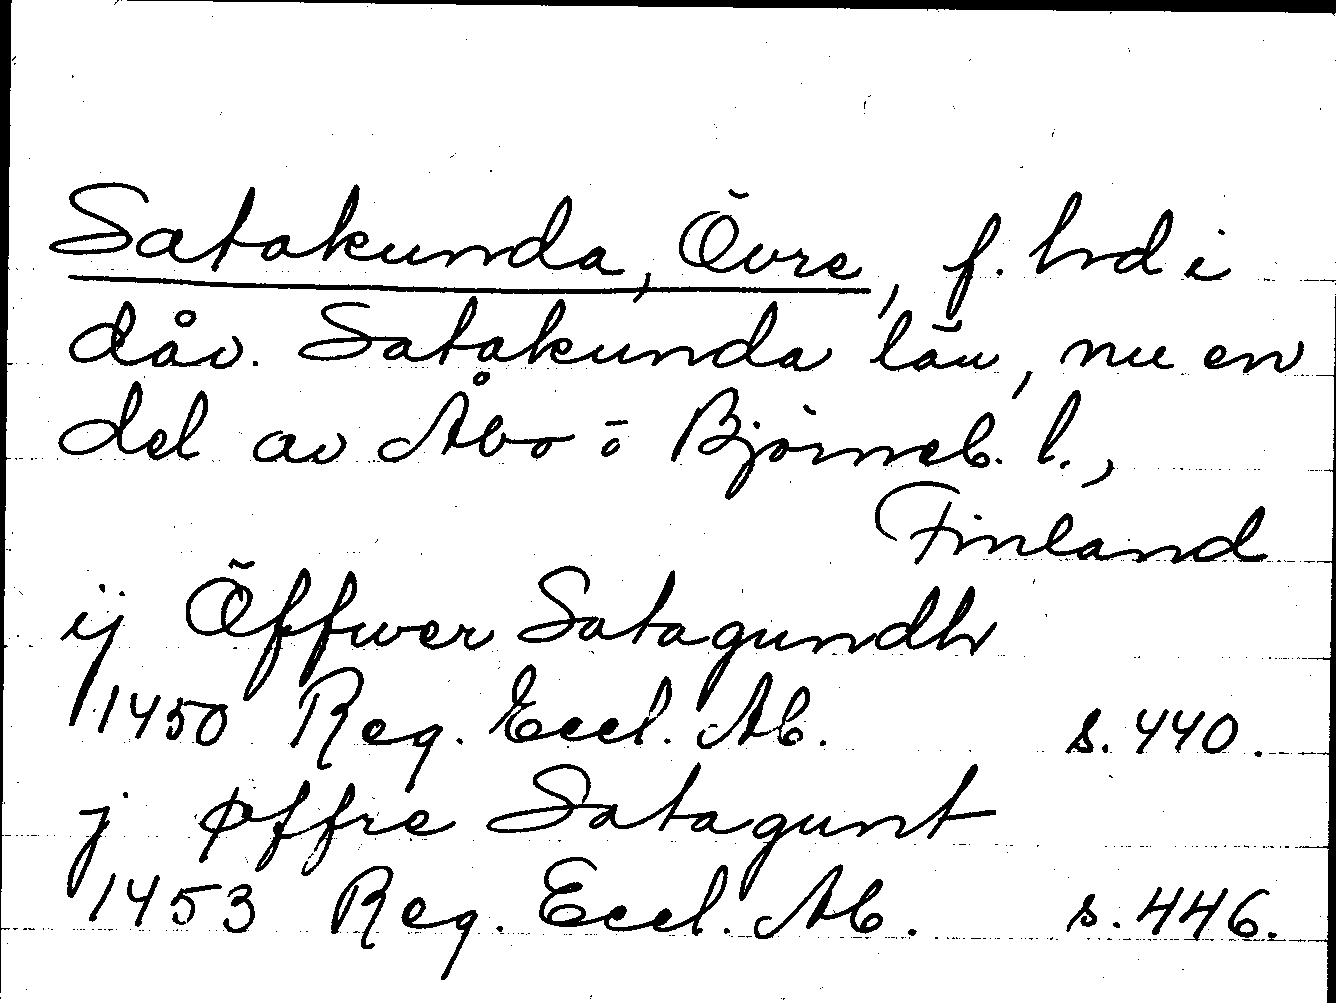 Satakunda, Övre, f. hd i
dåv. Satakunda län, nu en
del av Åbo o Björneb. l.,
Finland
ij Öffwer Satagundh
1450 Reg. Eccl. Ab. s. 440.
j øffre Satagunt
1453 Reg. Eccl. Ab. s. 446.